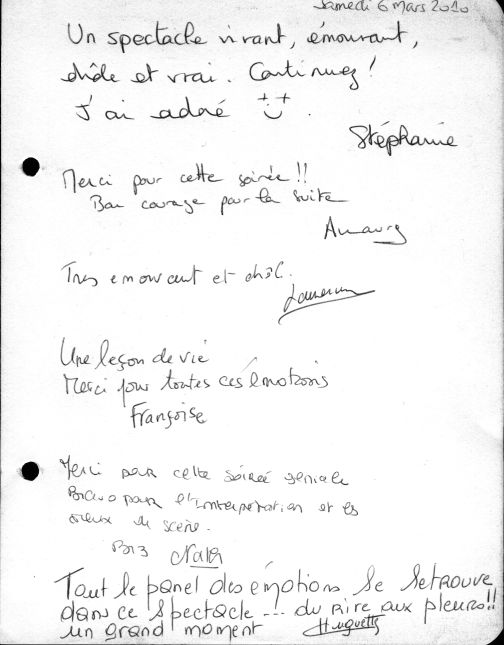 Samedi 6 Mars 2010
Un spectacle vivant, émouvant,
drôle et vrai. Continuez !
J'ai adoré
Stéphanie
Merci pour cette soirée !!
Bon courage pour la suite
Amaury
Tres emouvant et drôle.
Une leçon de vie
Merci pour toutes ces émotions
Françoise
Merci pour cette soireé geniale
Bravo pour l'interpretation et les
de scène.
Biz
Tout le panel des émotions se retrouve
dans ce spectacle ... du rire aux pleurs!!
un grand moment Huguette